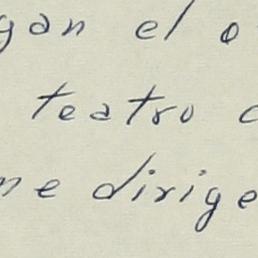 gan el o
teatro c
ne dirige